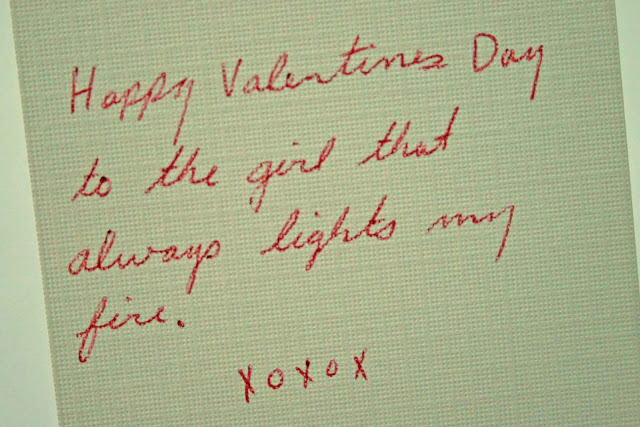 Happy Valentines Day
to the girl that
always lights my
fire.
XOXOX